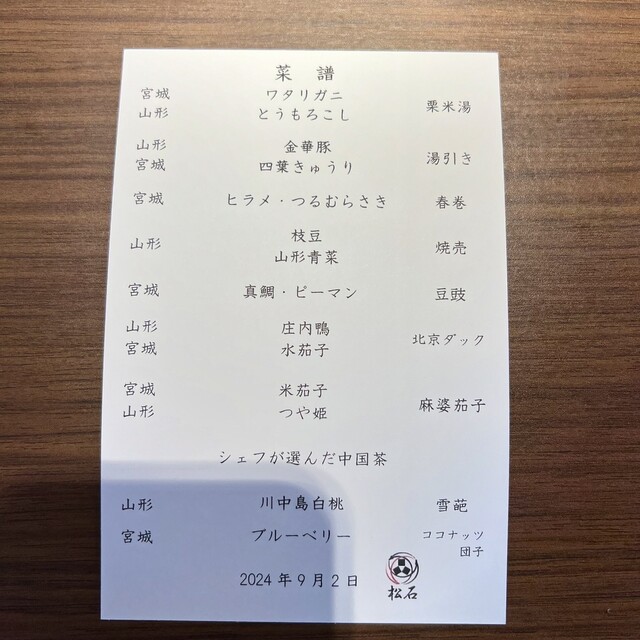 菜 譜
宮城 ワタリガニ
山形 とうもろこし 粟米湯
山形 金華豚
宮城 四葉きゅうり 湯引き
宮城 ヒラメ・つるむらさき 春巻
枝豆
山形 山形青菜 焼売
宮城 真鯛・ピーマン 豆豉
山形 庄内鴨
宮城 水茄子 北京ダック
宮城 米茄子
山形 つや姫 麻婆茄子
シェフが選んだ中国茶
山形 川中島白桃 雪葩
宮城 ブルーベリー ココナッツ
団子
2024年9月2日 松石